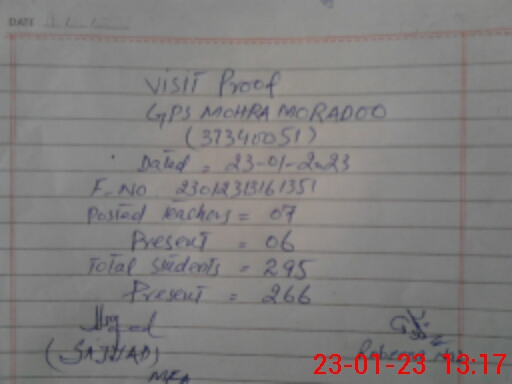 DATE
Visit Proof
GPS MOHRA MORADOO
(37340051)
Dated = 23-01-2023
F. No 2301231316 1351
Posted teachers = 07
Present = 06
Total students = 295
Present = 266
(SAJJAD)
MEA
23-01-23 13:17